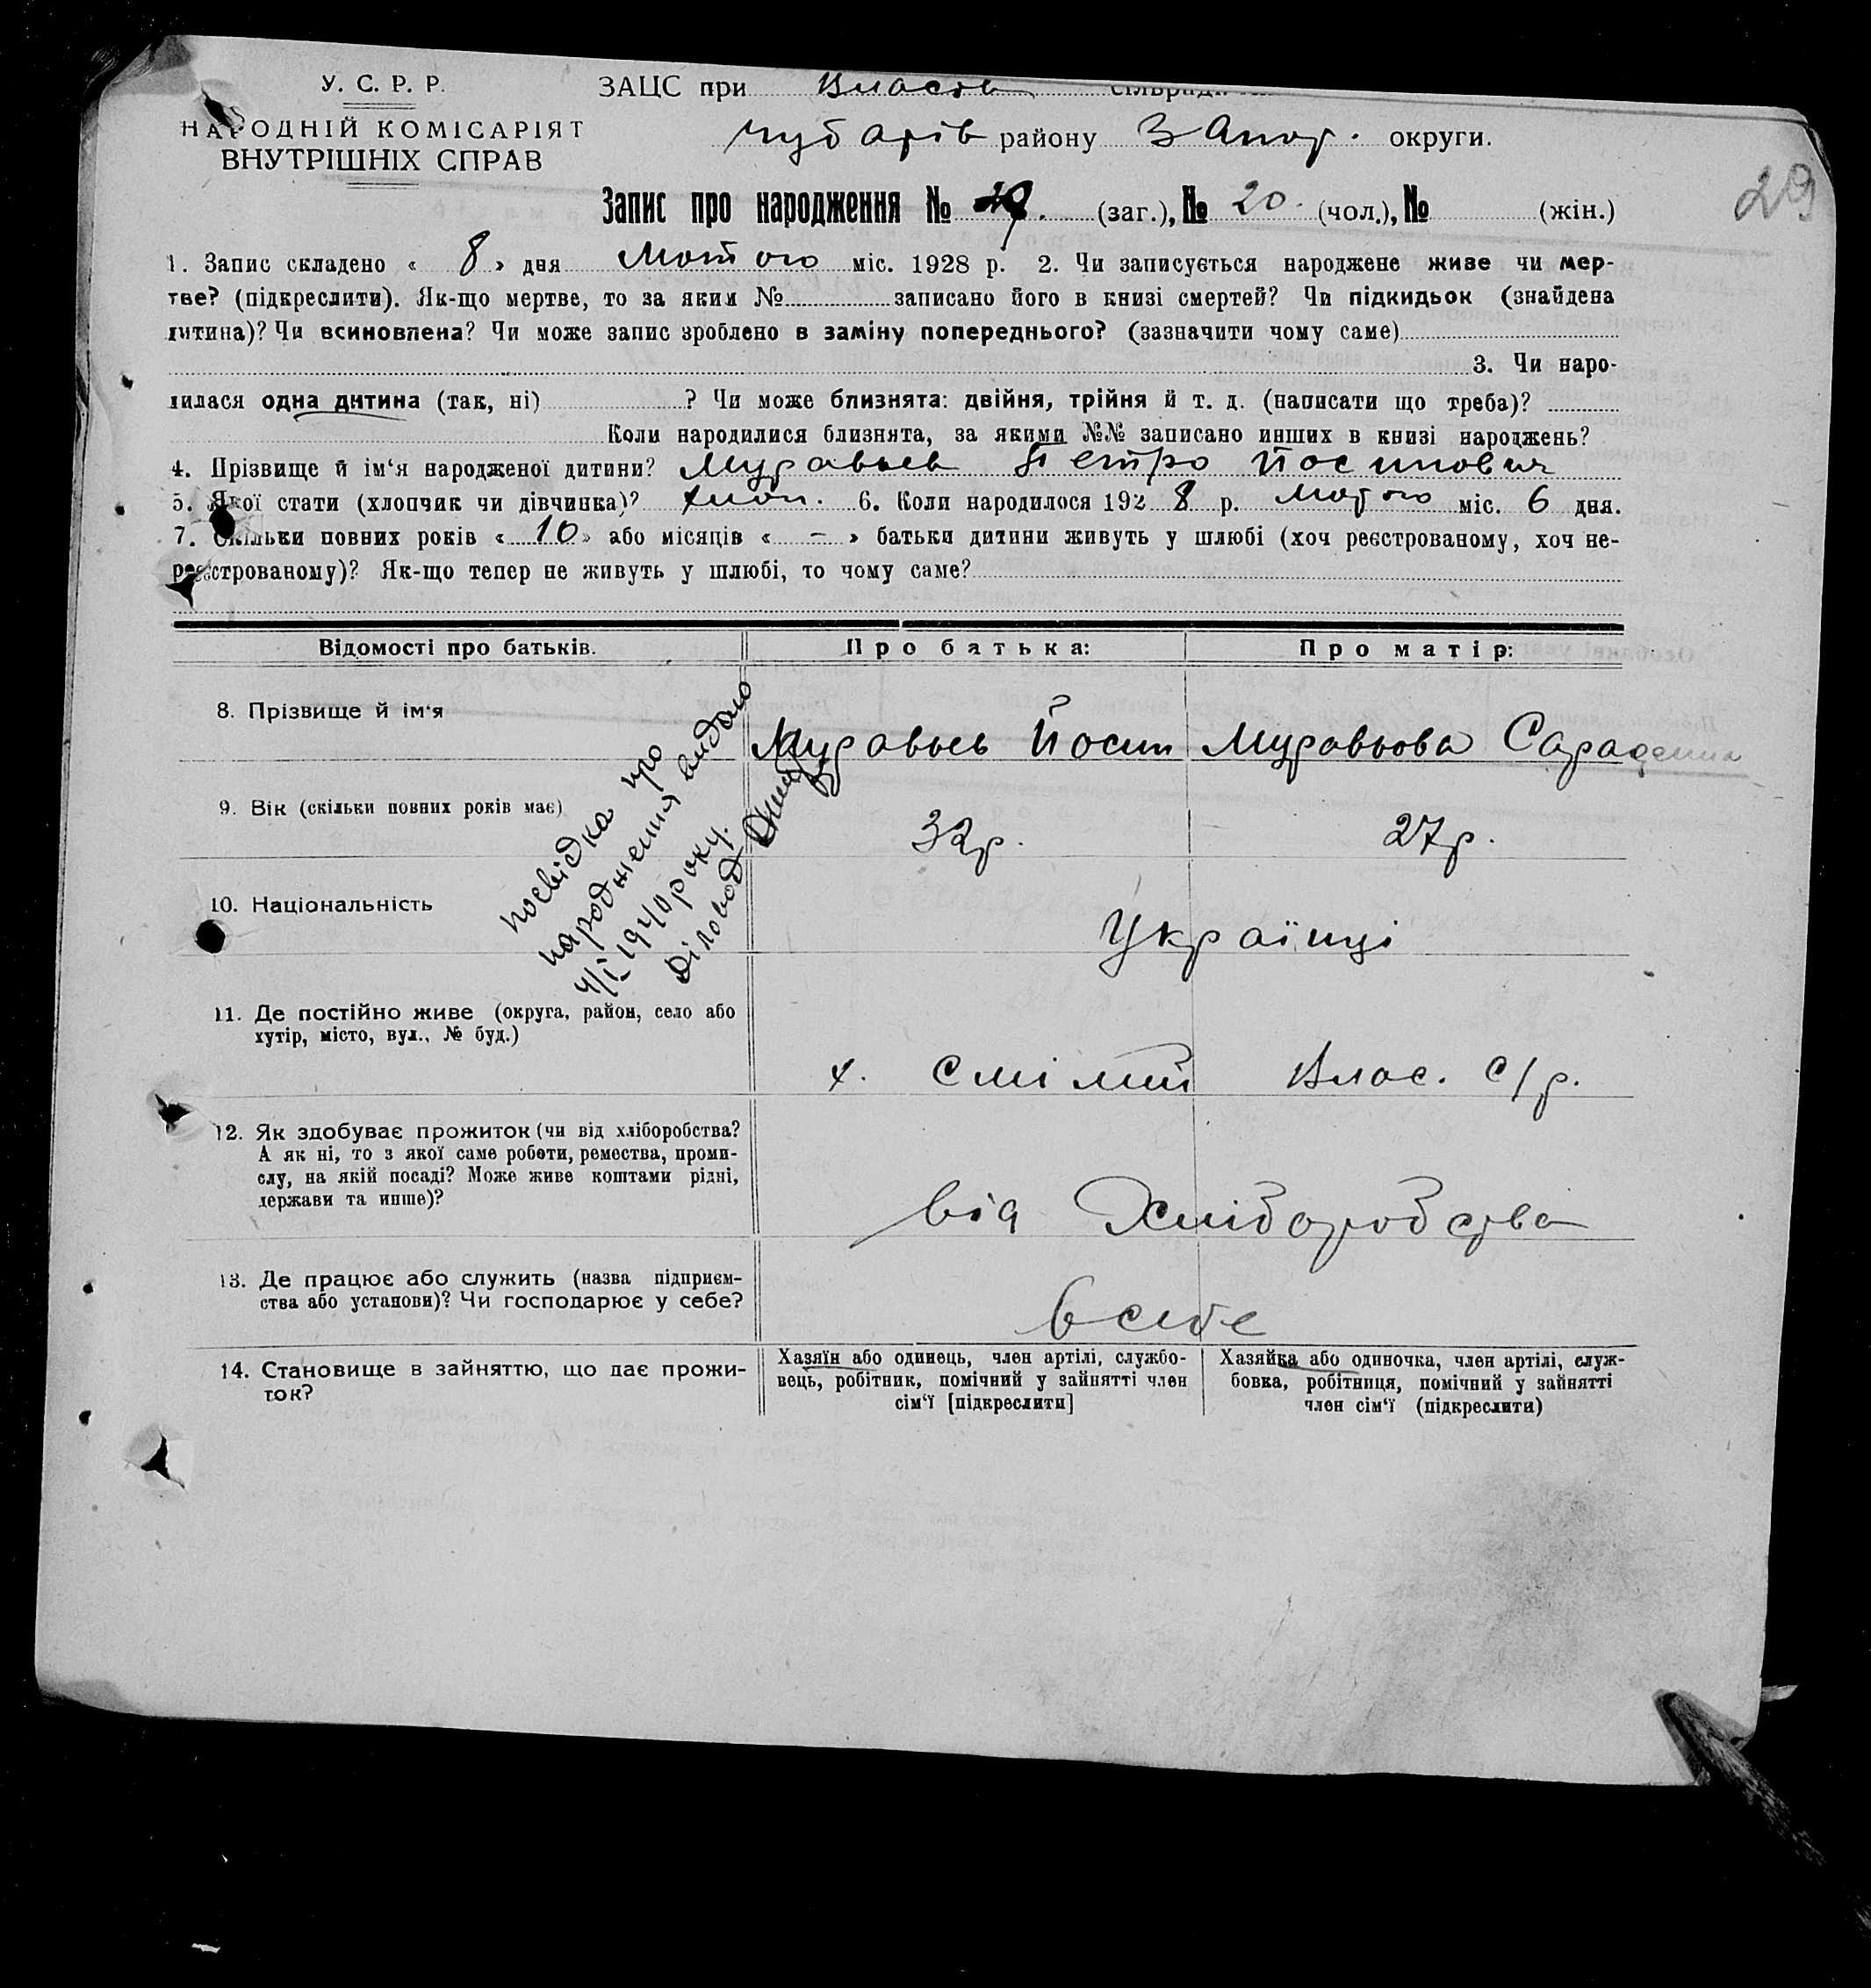 У. С. Р. Р.
НАРОДНІЙ КОМІСАРІЯТ
ВНУТРІШНІХ СПРАВ
ЗАЦС при Власів сільради
Чубарів району Запор. округи.
29
Запис про народження № (заг.), № 20. (чол.), № (жін.)
1. Запис складено « 8 » дня Лютого міс. 1928 р. 2. Чи записується народжене живе чи мер-
тве? (підкреслити). Як-що мертве, то за яким № записано його в книзі смертей? Чи підкидьок (знайдена
дитина)? Чи всиновлена? Чи може запис зроблено в заміну попереднього? (зазначити чому саме)
3. Чи наро-
дилася одна дитина (так, ні) ? Чи може близнята: двійня, трійня й т. д. (написати що треба)?
Коли народилися близнята, за якими №№ записано инших в книзі народжень?
4. Прізвище й ім'я народженої дитини? Муравьев Петро Йосипович
5. Якої стати (хлопчик чи дівчинка)? хлоп. 6. Коли народилося 1928 р. Лютого міс. 6 дня.
7. Скільки повних років « 10 » або місяців « - » батьки дитини живуть у шлюбі (хоч реєстрованому, хоч не-
реєстрованому)? Як-що тепер не живуть у шлюбі, то чому саме?
Відомості про батьків. Про батька: Про матір:
8. Прізвище й ім'я Муравьев Йосип Муравьова
9. Вік (скільки повних років має) 32р. 27р.
посвідка про
народження видано
4/I 1940 року.
Діловод
10. Національність Українці
11. Де постійно живе (округа, район, село або
хутір, місто, вул., № буд.)
х. Смілий Влас. с/р.
12. Як здобуває прожиток (чи від хліборобства?
А як ні, то з якої саме роботи, ремества, проми-
слу, на якій посаді? Може живе коштами рідні,
держави та инше)?
від Хліборобства
13. Де працює або служить (назва підприєм-
ства або установи)? Чи господарює у себе?
в себе
14. Становище в зайняттю, що дає прожи-
ток?
Хазяїн або одинець, член артілі, службо-
вець, робітник, помічний у зайнятті член
сім'ї [підкреслити]
Хазяйка або одиночка, член артілі, служ-
бовка, робітниця, помічний у зайнятті
член сім'ї (підкреслити)